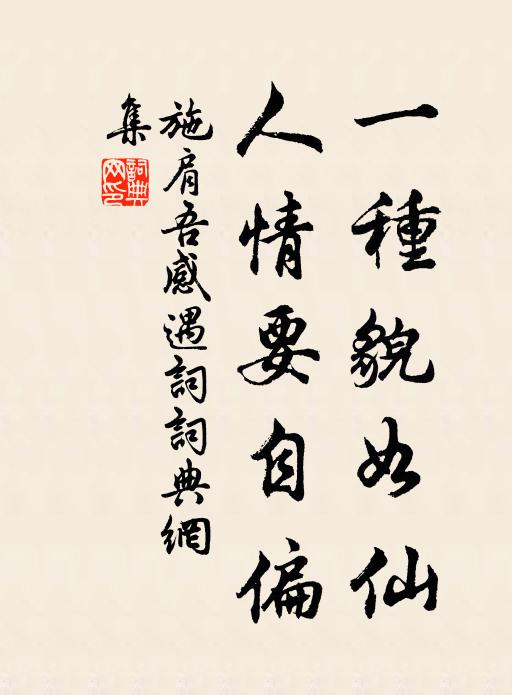 一種貌如仙
人情要自偏
施肩吾感遇詞詞典網
集
詞典
网印